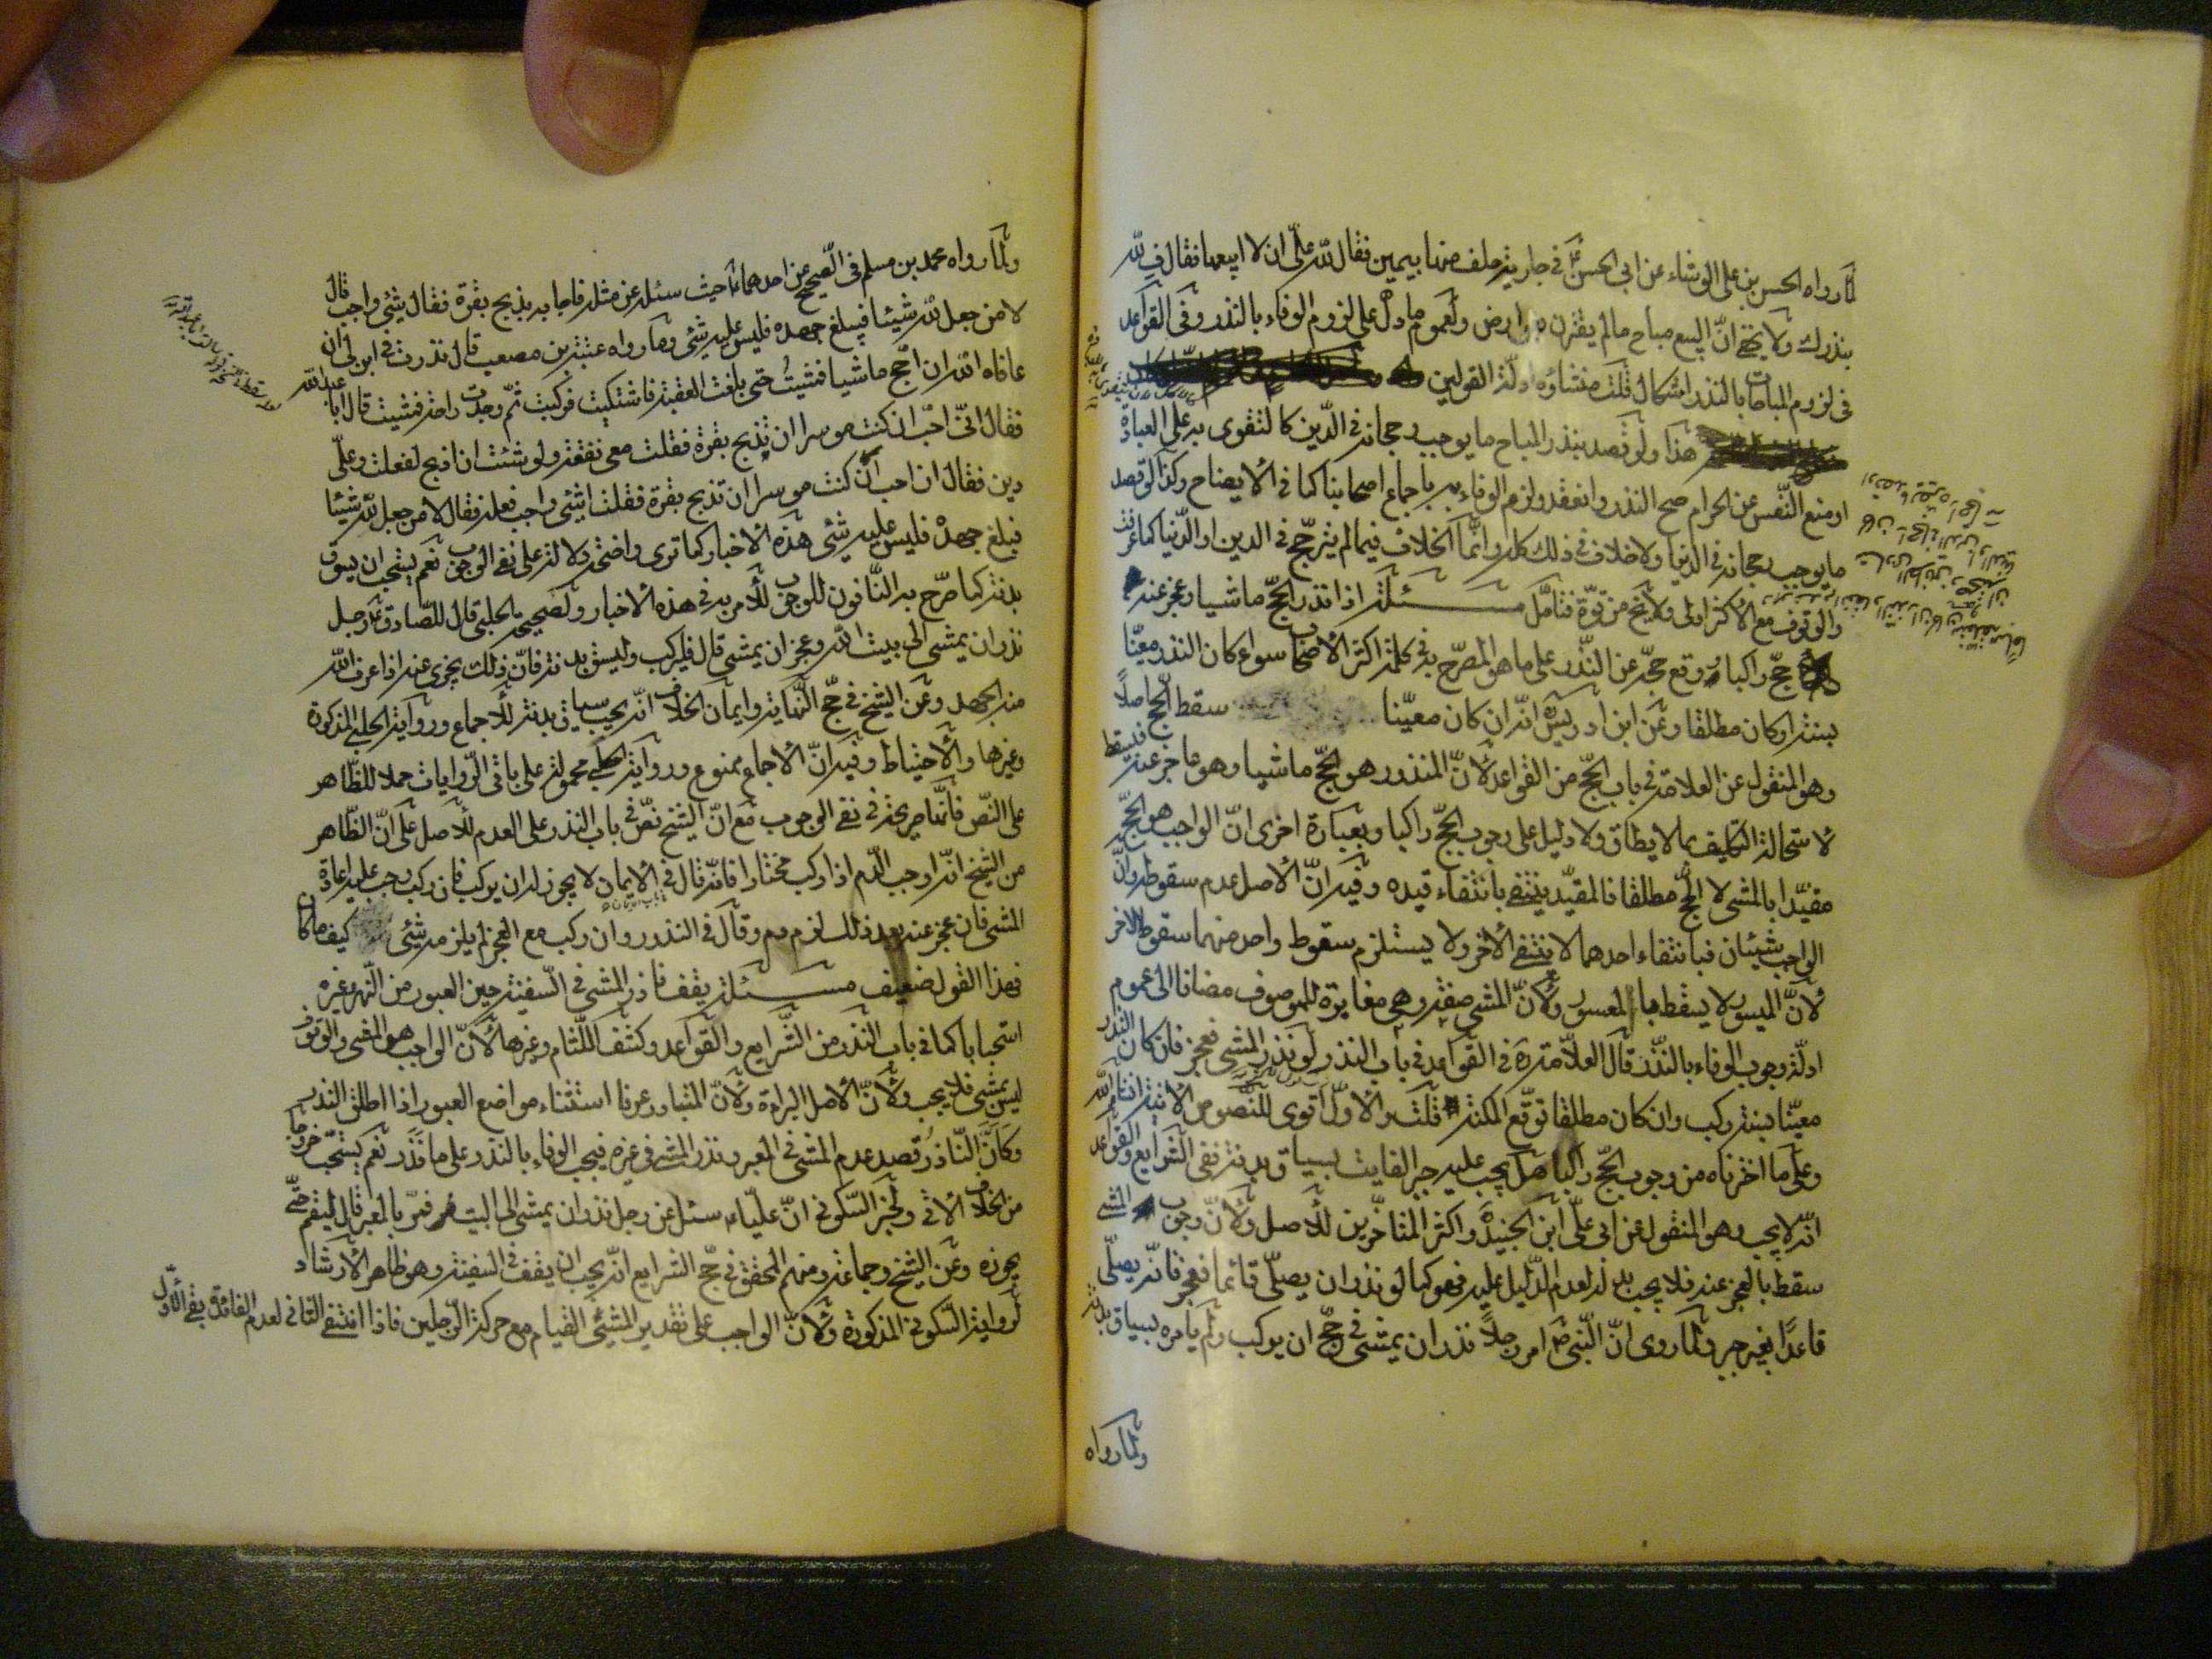 لما رواه الحسن بن علي الوشاء عن ابي الحسن ع في جارية حلف منها بيمين فقال لله علي ان لا ابيعها فقال ف لله
بنذرك ولا يخفى انّ البيع مباح مالم يقترن بعوارض ولعموم مادل على لزوم الوفاء بالنذر وفي القواعد
في لزوم المباحات بالنذر اشكال قلت منشاؤه ادلة القولين
هذا ولو قصد بنذر المباح ما يوجب رجحانه في الدّين كالتقوى به على العبادة
او منع النّفس عن الحرام صح النذر وانعقد ولزم الوفاء به باجماع اصحابنا كما في الايضاح وكذا لو قصد
ما يوجب رجحانه في الدنيا ولا خلاف في ذلك كله وانّما الخلاف فيما لم يترجّح في الدين او الدّنيا كما عرفت
والوقوف مع الاكثر اولى ولا يخ من قوّة فتامّل مسئلة اذا نذر الحجّ ماشيا وعجز عنه
حجّ راكبا ووقع حجّه عن النّذر على ما هو المصرّح به في كلمة اكثر الاصحاب سواء كان النذر معيّنا
بسنة او كان مطلقا وعن ابن ادريس انّه ان كان معيّنا سقط الحج اصلاً
وهو المنقول عن العلامة في باب الحجّ من القواعد لانّ المنذور هو الحجّ ماشيا وهو عاجز عنه فيسقط
لاستحالة التكليف بما لا يطاق ولا دليل على وجوب الحجّ راكبا وبعبارة اخرى انّ الواجب هو الحجّ
مقيّدا بالمشي لا الحجّ مطلقا فالمقيّد ينتفي بانتفاء قيده وفيه انّ الاصل عدم سقوطه وانّ
الواجب شيئان فبانتفاء احدهما لا ينتفي الاخر ولا يستلزم سقوط واحد منهما سقوط الاخر
لانّ الميسور لا يسقط بالمعسور ولانّ المشي صفة وهي مغايرة للموصوف مضافا الى عموم
ادلّة وجوب الوفاء بالنّذر قال العلاّمة ره في القواعد في باب النذر لو نذر المشي فعجز فان كان النذر
معيّنا بسنة ركب وان كان مطلقا توقّع المكنة قلت الاوّل اقوى للنّصوص الاتية انشاء الله
وعلى ما اخترناه من وجوب الحجّ راكبا هل يجب عليه جبر الفايت بسياق بدنة ففي الشرايع والقواعد
انّه لا يجب وهو المنقول عن ابي علي ابن الجنيد واكثر المتاخّرين للاصل ولانّ وجوب المشي
سقط بالعجز عنه فلا يجب بدله لعدم الدّليل عليه فهو كما لو نذر ان يصلّي قائما فعجز فانّه يصلّي
قاعدًا بغير جبر ولما روى انّ النّبي ص امر رجلاً نذر ان يمشي في حجّ ان يركب ولم يامره بسياق بدنة
ولما رواه
ولما رواه محمد بن مسلم في الصّحيح عن احدهما ع حيث سئله عن مثله فاجابه بذبح بقرة فقال شئي واجب قال
لا من جعل لله شيئا فبلغ جهده فليس عليه شئي وما رواه عنبثة بن مصعب قال نذرت في ابن لي ان
عافاه الله ان احج ماشيا فمشيت حتى بلغت العقبة فاشتكيت فركبت ثمّ وجدت راحة فمشيت قال ابا عبد الله
فقال انّي احبّ ان كنت موسرا ان تذبح بقرة فقلت معي نفقة ولو شئت ان اذبح لفعلت وعليّ
دين فقال ان احب ان كنت موسرا ان تذبح بقرة فقلت اشئي واجب فعله فقال لا من جعل لله شيئا
فبلغ جهده فليس عليه شئي هذه الاخبار كما ترى واضحة دلالة على نفي الوجوب نعم يستحب ان يسوق
بدنة كما صرّح به النّافون للوجوب للامر به في هذه الاخبار ولصحيحة الحلبي قال للصّادق ع رجل
نذر ان يمشي الى بيت الله وعجز ان يمشي قال فليركب وليسق بدنة فانّ ذلك يجزي عنه اذا عرف الله
منه الجهد وعن الشيخ في حجّ النّهاية وايمان الخلاف انّه يجب سياق بدنة للاجماع ورواية الحلبي المذكورة
وغيرها والاحتياط وفيه انّ الاجماع ممنوع ورواية الحلبي محمولة على باقي الرّوايات حملا للظّاهر
على النّص فانّها صريحة في نفي الوجوب مع انّ الشيخ نصّ في باب النذر على العدم للاصل على انّ الظّاهر
من الشيخ انّه اوجب الدّم اذا ركب مختارا فانّه قال في الايمان لا يجوز له ان يركب فان ركب وجب عليه اعادة
المشي فان عجز عنه بعد ذلك لزم دم وقال في النذور وان ركب مع العجز لم يلزمه شئي كيف ما كان
فهذا القول ضعيف مسئلة يقف ناذر المشي في السّفينة حين العبور من النّهر وغيره
استحبابا كما في باب النذر من الشّرايع والقواعد وكشف اللّثام وغيرها لانّ الواجب هو المشي والوقوف
ليس بمشي فلا يجب ولانّ الاصل البراءة ولانّ المتبادر عرفا استثناء مواضع العبور اذا اطلق النذر
وكانّ النّاذر قصد عدم المشي في المعبر ونذر المشي في غيره فيجب الوفاء بالنذر على ما نذر نعم يستحبّ خروجا
من الخلاف الاتي ولخبر السّكوني انّ عليّا ع سئل عن رجل نذر ان يمشي الى البيت فمرّ بالمعبر قال ليقم حتى
يجوزه وعن الشيخ وجماعة ومنهم المحقق في حجّ الشرايع انّه يجب ان يقف في السفينة وهو ظاهر الارشاد
لرواية السّكوني المذكورة ولانّ الواجب على تقدير المشي القيام مع حركة الرّجلين فاذا انتفى الثاني لعدم الفائدة بقي الاوّل